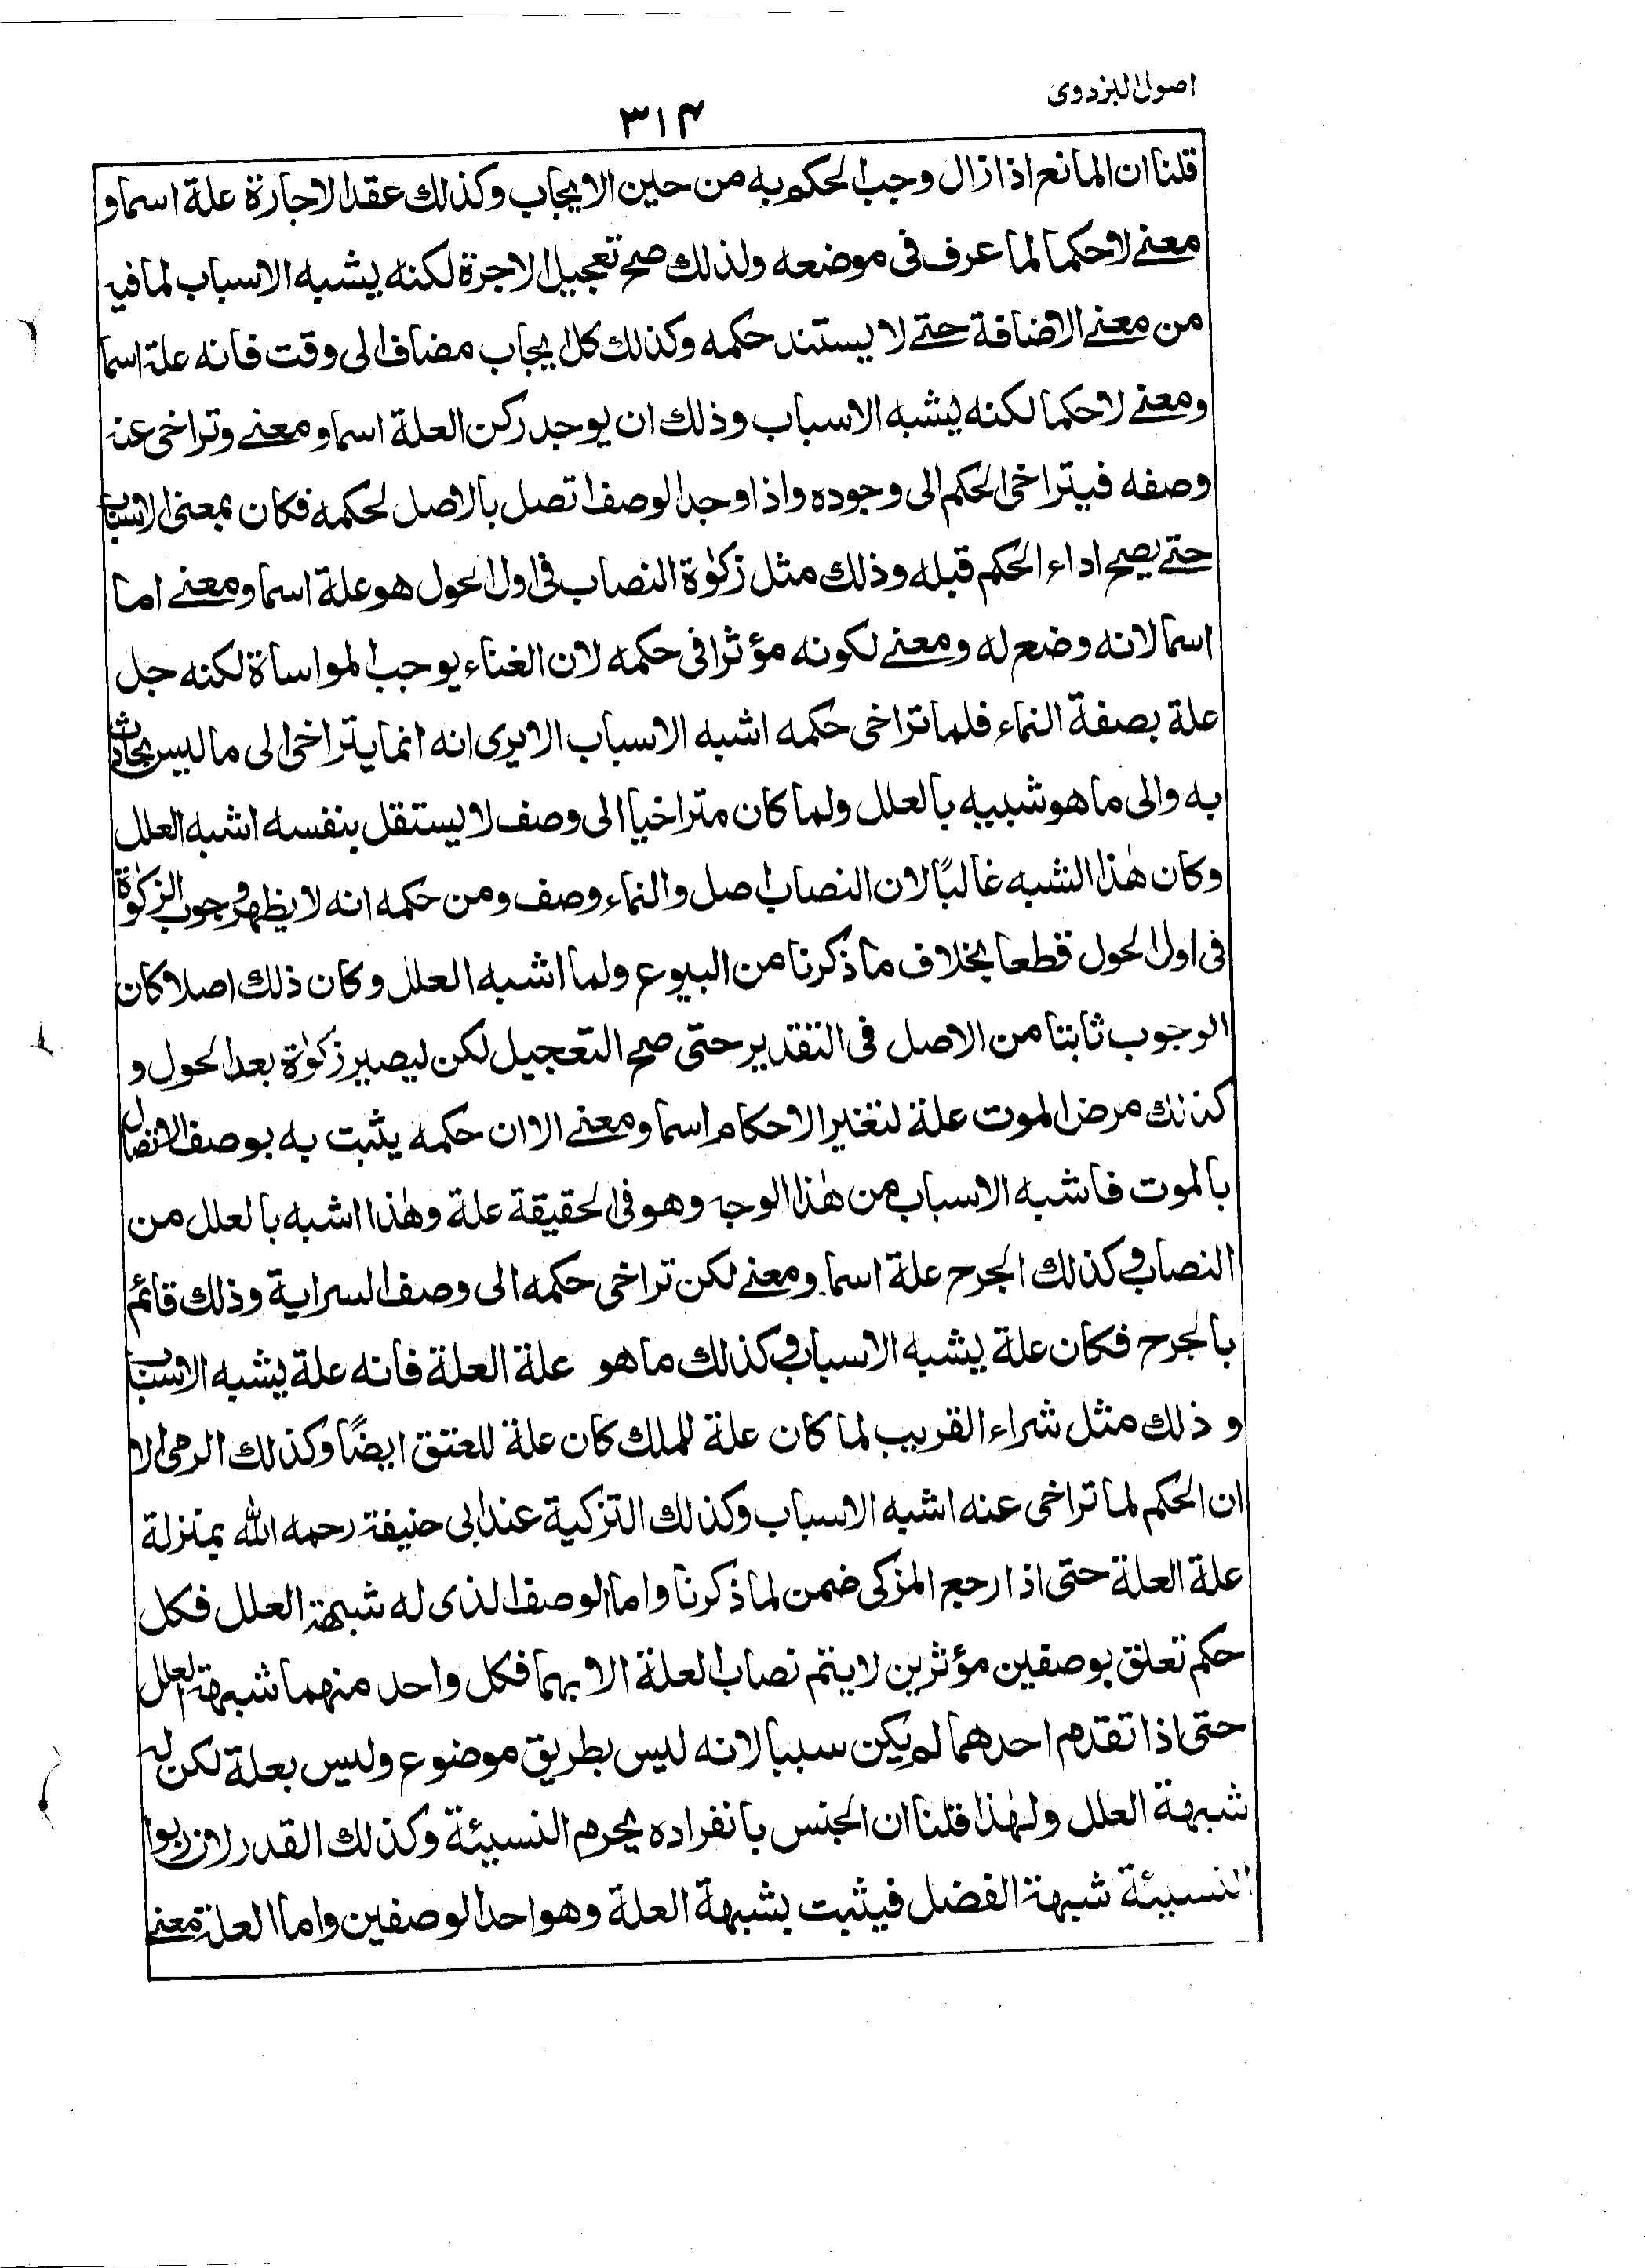 اصول البزدوى
٣١٤
قلنا ان المانع اذا زال وجب الحكم به من حين الايجاب وكذلك عقد الاجارة علة اسما و
معنے لا حكما لما عرف فى موضعه ولذلك صح تعجيل الاجرة لكنه يشبه الاسباب لما فيه
من معنے الاضافة حتے لا يستند حكمه وكذلك كل ايجاب مضاف الى وقت فانه علة اسما
ومعنے لا حكما لكنه يشبه الاسباب وذلك ان يوجد ركن العلة اسما ومعنے وتراخى عنه
وصفه فيتراخى الحكم الى وجوده واذا وجد الوصف اتصل بالاصل لحكمه فكان بمعنى الاسباب
حتے يصح اداء الحكم قبله وذلك مثل زكوٰة النصاب فى اول الحول هو علة اسما ومعنے اما
اسما لانه وضع له ومعنے لكونه مؤثرا فى حكمه لان الغناء يوجب المواساة لكنه جل
علة بصفة النماء فلما تراخى حكمه اشبه الاسباب الا يرى انه انما يتراخى الى ما ليس بحادث
به والى ما هو شبيه بالعلل ولما كان متراخيا الى وصف لا يستقل بنفسه اشبه العلل
وكان هٰذا الشبه غالبًا لان النصاب اصل والنماء وصف ومن حكمه انه لا يظهر وجوب الزكوٰة
فى اول الحول قطعا بخلاف ما ذكرنا من البيوع ولما اشبه العلل وكان ذلك اصلا كان
الوجوب ثابتا من الاصل فى التقدير حتى صح التعجيل لكن ليصير زكوٰة بعد الحول و
كذلك مرض الموت علة لتغير الاحكام اسما ومعنے الا ان حكمه يثبت به بوصف الاتصال
بالموت فاشبه الاسباب من هٰذا الوجه وهو فى الحقيقة علة وهٰذا اشبه بالعلل من
النصاب وكذلك الجرح علة اسما ومعنے لكن تراخى حكمه الى وصف السراية وذلك قائم
بالجرح فكان علة يشبه الاسباب وكذلك ما هو علة العلة فانه علة يشبه الاسباب
و ذلك مثل شراء القريب لما كان علة للملك كان علة للعتق ايضًا وكذلك الرمى الا
ان الحكم لما تراخى عنه اشبه الاسباب وكذلك التزكية عند ابى حنيفة رحمه الله بمنزلة
علة العلة حتى اذا رجع المزكى ضمن لما ذكرنا واما الوصف الذى له شبهة العلل فكل
حكم تعلق بوصفين مؤثرين لا يتم نصاب العلة الا بهما فكل واحد منهما شبهة العلل
حتى اذا تقدم احدهما لم يكن سببا لانه ليس بطريق موضوع وليس بعلة لكن له
شبهة العلل ولهٰذا قلنا ان الجنس بانفراده يحرم النسيئة وكذلك القدر لان ربوا
النسيئة شبهة الفضل فيثبت بشبهة العلة وهو احد الوصفين واما العلة معنے